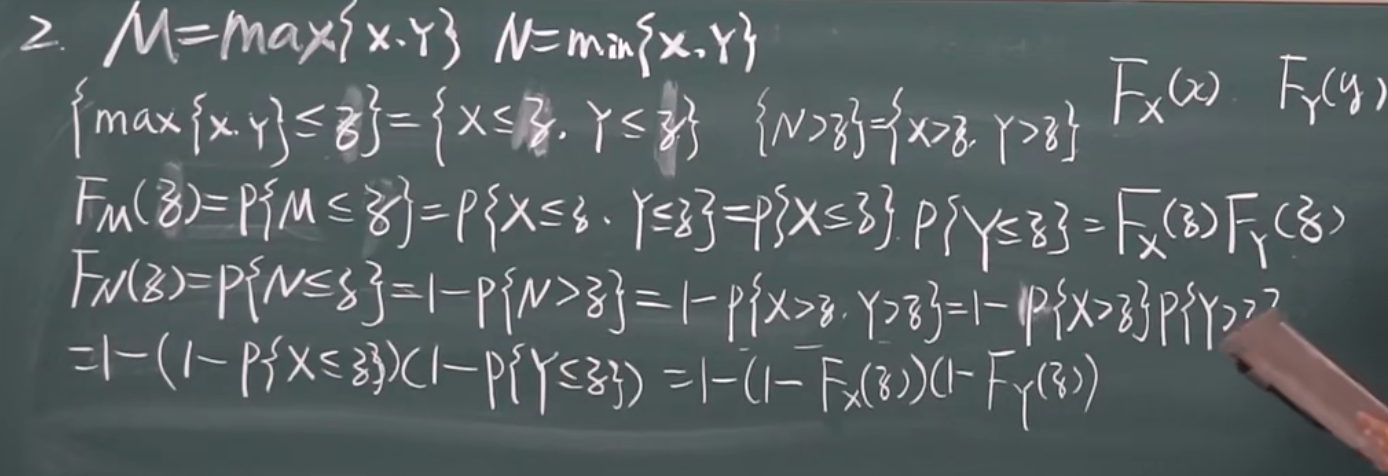 2. M=max{X.Y} N=min{X.Y}
F_X(x) F_Y(y)
{max{X.Y}≤z}={X≤z. Y≤z} {N>z}={X>z. Y>z}
F_M(z)=P{M≤z}=P{X≤z. Y≤z}=P{X≤z}.P{Y≤z}=F_X(z)F_Y(z)
F_N(z)=P{N≤z}=1-P{N>z}=1-P{X>z.Y>z}=1-P{X>z}P{Y>
=1-(1-P{X≤z})(1-P{Y≤z})=1-(1-F_X(z))(1-F_Y(z))